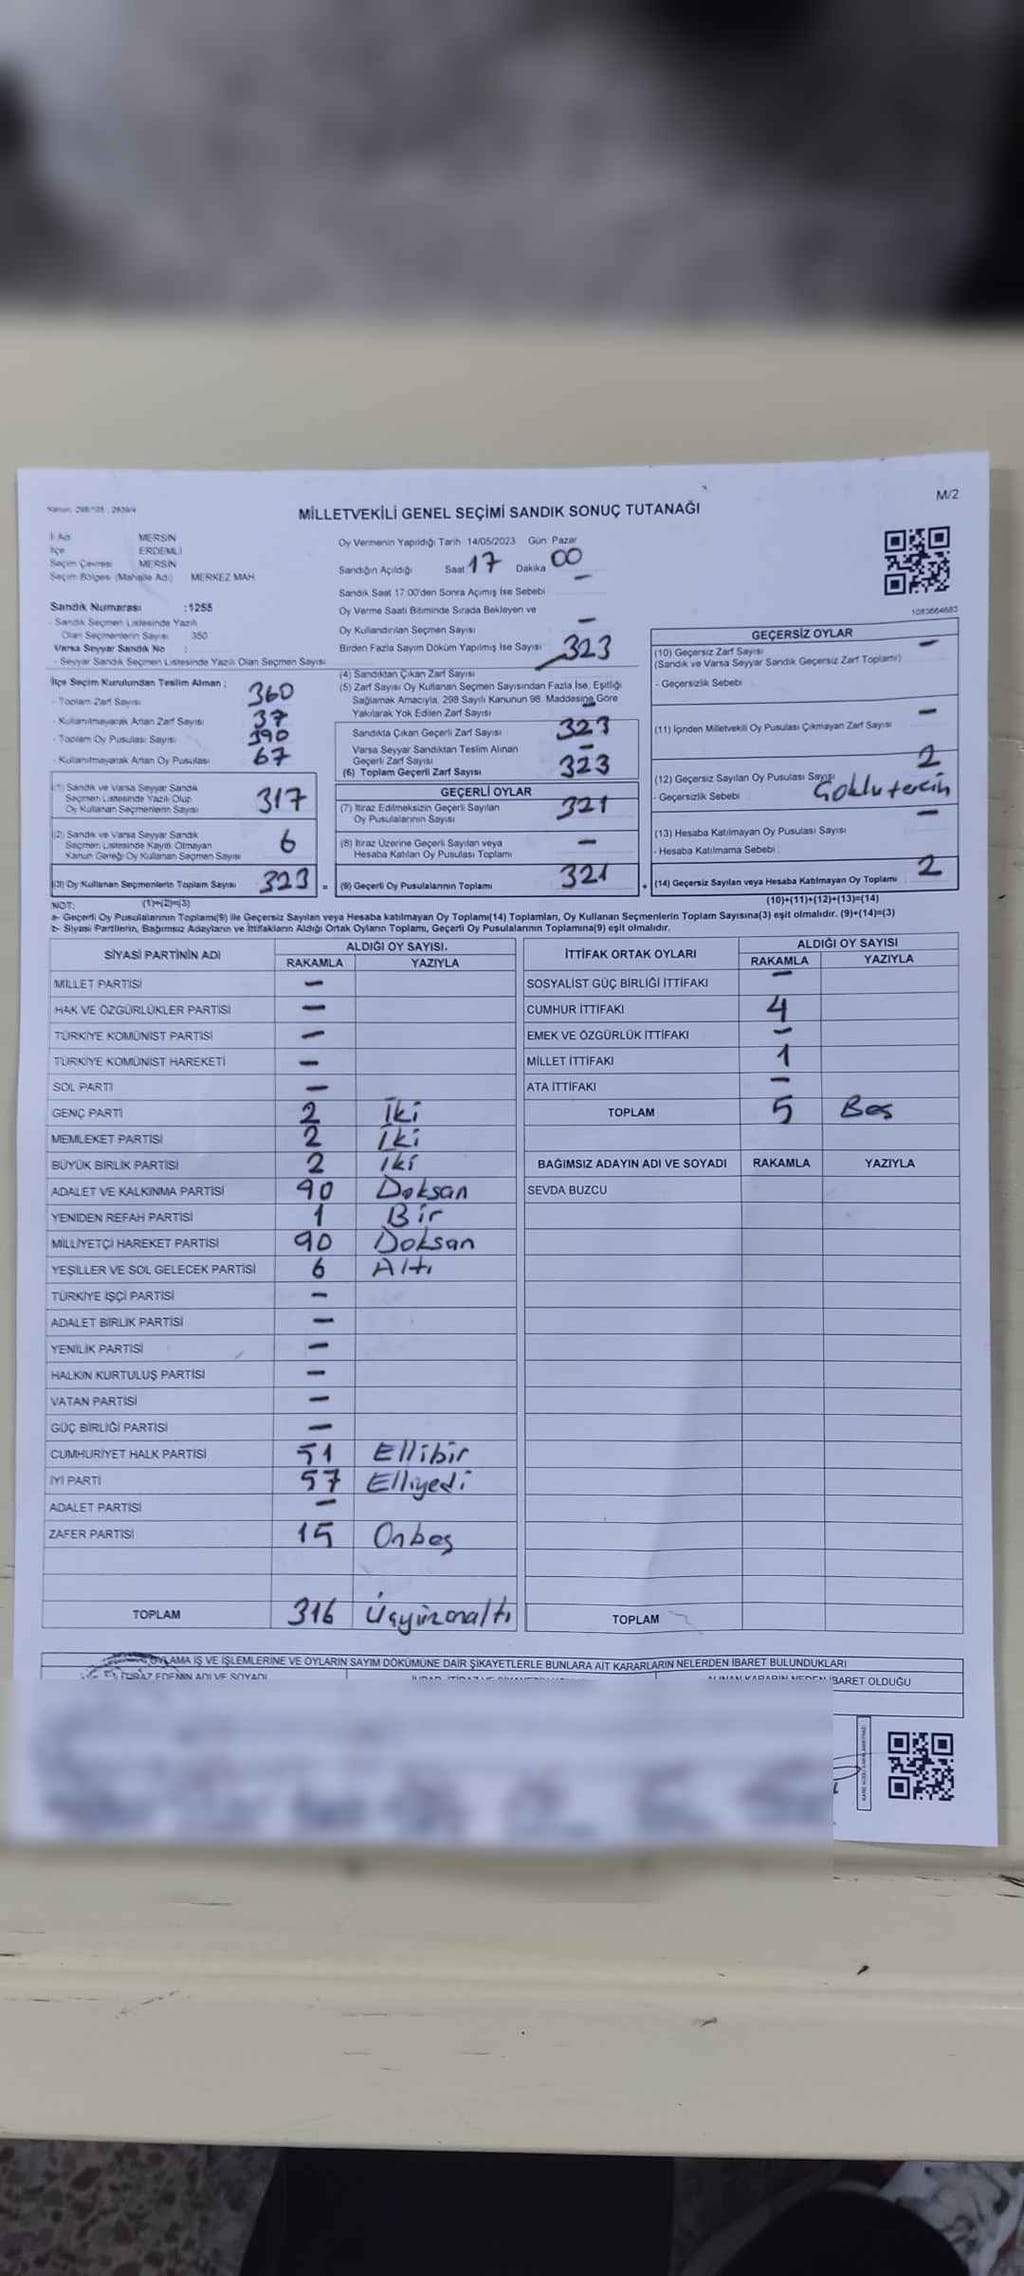 M/2
Kanun: 298/101 , 2839/4
MİLLETVEKİLİ GENEL SEÇİMİ SANDIK SONUÇ TUTANAĞI
İl Adı MERSİN
İlçe ERDEMLİ
Seçim Çevresi MERSİN
Seçim Bölgesi (Mahalle Adı) MERKEZ MAH
Sandık Numarası :1255
Sandık Seçmen Listesinde Yazılı
Olan Seçmenlerin Sayısı 350
Varsa Seyyar Sandık No :
- Seyyar Sandık Seçmen Listesinde Yazılı Olan Seçmen Sayısı
İlçe Seçim Kurulundan Teslim Alınan ;
- Toplam Zarf Sayısı 360
- Kullanılmayarak Artan Zarf Sayısı 37
- Toplam Oy Pusulası Sayısı 390
- Kullanılmayarak Artan Oy Pusulası 67
(1) Sandık ve Varsa Seyyar Sandık
Seçmen Listesinde Yazılı Olup
Oy Kullanan Seçmenlerin Sayısı 317
(2) Sandık ve Varsa Seyyar Sandık
Seçmen Listesinde Kayıtlı Olmayan
Kanun Gereği Oy Kullanan Seçmen Sayısı 6
(3) Oy Kullanan Seçmenlerin Toplam Sayısı 323 =
(1)+(2)=(3)
Oy Vermenin Yapıldığı Tarih 14/05/2023 Gün Pazar
Sandığın Açıldığı Saat 17 Dakika 00
Sandık Saat 17.00'den Sonra Açımış İse Sebebi -
Oy Verme Saati Bitiminde Sırada Bekleyen ve
Oy Kullandırılan Seçmen Sayısı -
Birden Fazla Sayım Döküm Yapılmış İse Sayısı
(4) Sandıktan Çıkan Zarf Sayısı 323
(5) Zarf Sayısı Oy Kullanan Seçmen Sayısından Fazla İse, Eşitliği
Sağlamak Amacıyla, 298 Sayılı Kanunun 98. Maddesine Göre
Yakılarak Yok Edilen Zarf Sayısı -
Sandıkta Çıkan Geçerli Zarf Sayısı 323
Varsa Seyyar Sandıktan Teslim Alınan
Geçerli Zarf Sayısı -
(6) Toplam Geçerli Zarf Sayısı 323
GEÇERLİ OYLAR
(7) İtiraz Edilmeksizin Geçerli Sayılan
Oy Pusulalarının Sayısı 321
(8) İtiraz Üzerine Geçerli Sayılan veya
Hesaba Katılan Oy Pusulası Toplamı -
(9) Geçerli Oy Pusulalarının Toplamı 321 +
1083664683
GEÇERSİZ OYLAR
(10) Geçersiz Zarf Sayısı -
(Sandık ve Varsa Seyyar Sandık Geçersiz Zarf Toplamı)
- Geçersizlik Sebebi
(11) İçinden Milletvekili Oy Pusulası Çıkmayan Zarf Sayısı -
(12) Geçersiz Sayılan Oy Pusulası Sayısı 2
- Geçersizlik Sebebi Çoklu tercih
(13) Hesaba Katılmayan Oy Pusulası Sayısı -
- Hesaba Katılmama Sebebi :
(14) Geçersiz Sayılan veya Hesaba Katılmayan Oy Toplamı 2
(10)+(11)+(12)+(13)=(14)
NOT:
a- Geçerli Oy Pusulalarının Toplamı(9) ile Geçersiz Sayılan veya Hesaba katılmayan Oy Toplamı(14) Toplamları, Oy Kullanan Seçmenlerin Toplam Sayısına(3) eşit olmalıdır. (9)+(14)=(3)
b- Siyasi Partilerin, Bağımsız Adayların ve İttifakların Aldığı Ortak Oyların Toplamı, Geçerli Oy Pusulalarının Toplamına(9) eşit olmalıdır.
SİYASİ PARTİNİN ADI ALDIĞI OY SAYISI.
RAKAMLA YAZIYLA
MİLLET PARTİSİ -
HAK VE ÖZGÜRLÜKLER PARTİSİ -
TÜRKİYE KOMÜNİST PARTİSİ -
TÜRKİYE KOMÜNİST HAREKETİ -
SOL PARTİ -
GENÇ PARTİ 2 İki
MEMLEKET PARTİSİ 2 İki
BÜYÜK BİRLİK PARTİSİ 2 İki
ADALET VE KALKINMA PARTİSİ 90 Doksan
YENİDEN REFAH PARTİSİ 1 Bir
MİLLİYETÇİ HAREKET PARTİSİ 90 Doksan
YEŞİLLER VE SOL GELECEK PARTİSİ 6 Altı
TÜRKİYE İŞÇİ PARTİSİ -
ADALET BİRLİK PARTİSİ -
YENİLİK PARTİSİ -
HALKIN KURTULUŞ PARTİSİ -
VATAN PARTİSİ -
GÜÇ BİRLİĞİ PARTİSİ -
CUMHURİYET HALK PARTİSİ 51 Ellibir
İYİ PARTİ 57 Elliyedi
ADALET PARTİSİ -
ZAFER PARTİSİ 15 Onbeş
TOPLAM 316 Üçyüzonaltı
İTTİFAK ORTAK OYLARI ALDIĞI OY SAYISI
RAKAMLA YAZIYLA
SOSYALİST GÜÇ BİRLİĞİ İTTİFAKI -
CUMHUR İTTİFAKI 4
EMEK VE ÖZGÜRLÜK İTTİFAKI -
MİLLET İTTİFAKI 1
ATA İTTİFAKI -
TOPLAM 5 Beş
BAĞIMSIZ ADAYIN ADI VE SOYADI RAKAMLA YAZIYLA
SEVDA BUZCU
TOPLAM
OYLAMA İŞ VE İŞLEMLERİNE VE OYLARIN SAYIM DÖKÜMÜNE DAİR ŞİKAYETLERLE BUNLARA AİT KARARLARIN NELERDEN İBARET BULUNDUKLARI
İTİRAZ EDENİN ADI VE SOYADI
ALINAN KARARIN NEDEN İBARET OLDUĞU